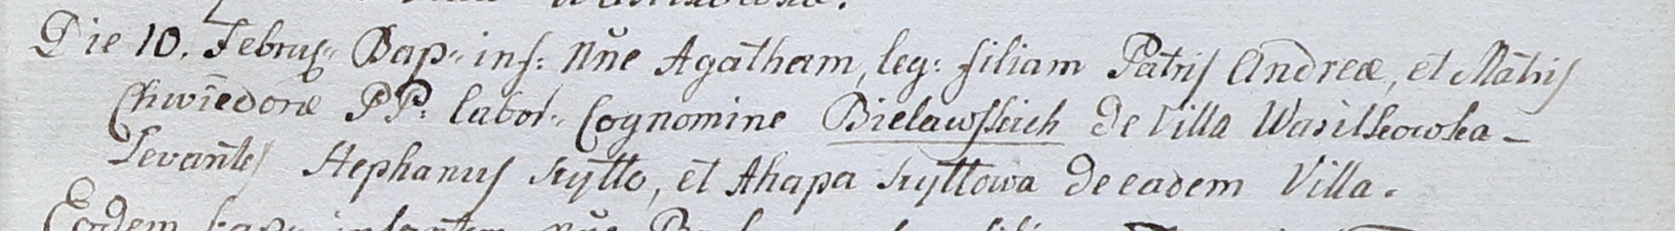 Die 10. Februarÿ Bap: inf: Nne Agatham, leg: filiam Patris Andreæ, et Matris
Chwiedoræ PP: labor: Cognomine Bielawskich de Villa Wasilkowka –
Levantes Stephanus Szytło, et Ahapa Szyttowa de eadem Villa.
Eodem